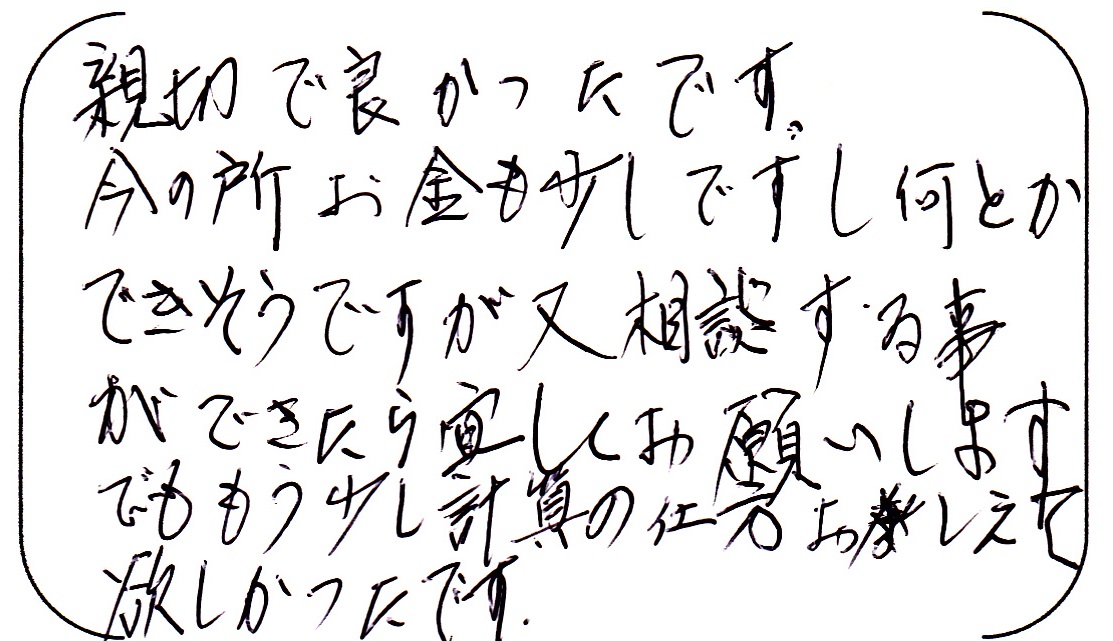 親切で良かったです。
今の所お金も少しですし何とか
できそうですが又相談する事
ができたら宜しくお願いします
でももう少し計算の仕方おしえて
欲しかったです.